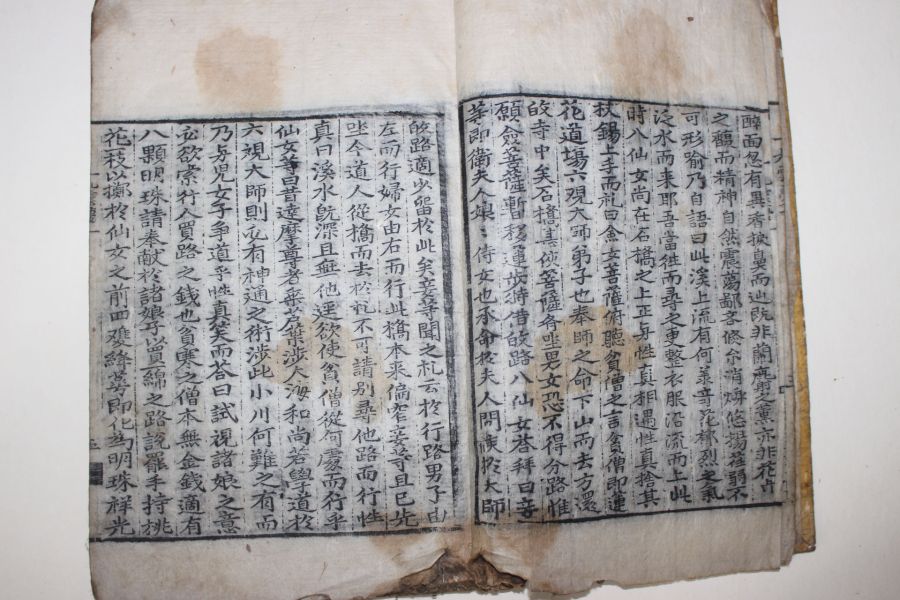 醉面忽有異香捩鼻而
既非蘭麝之熏亦非花卉
之馥而精神自然震蕩鄙吝倐尒消爍悠揚荏弱不
可形喻乃自語曰此溪上流有何㨾奇花郁烈之氣
泛水而来耶吾當徃而尋之更整衣服沿流而上此
時八仙女尚在石橋之上正与性真相遇性真捨其
杖錫上手而礼曰僉女菩薩俯聽貧僧之言貧僧即蓮
花道場六觀大師弟子也奉師之命下山而去方還
故寺中矣石橋甚俠菩薩斉坐男女恐不得分路惟
願僉菩薩暫移蓮步特借故路八仙女荅拜曰妾
等即衛夫人娘〻侍女也承命於夫人問候於大師
故路適少留於此矣妾等聞之礼云於行路男子由
左而行婦女由右而行此橋本来偏窄妾等且已先
坐今道人從橋而去於礼不可請别尋他路而行性
真曰溪水既深且無他逕欲使貧僧從何處而行乎
仙女等曰昔達摩尊者乘蘆葉涉大海和尚若學道於
六觀大師則必有神通之術涉此小川何難之有而
乃与児女子爭道乎性真笑而荅曰試視諸娘之意
必欲索行人買路之錢也貧寒之僧本無金錢適有
八顆明珠請奉獻於諸娘子以買綿之路說罷手持桃
花一枝以擲於仙女之前四雙絳葩即化為明珠祥光